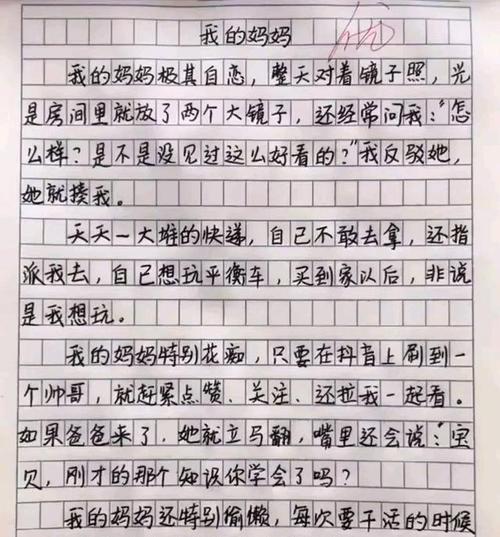 我的妈妈
优
我的妈妈极其自恋，整天对着镜子照，光
是房间里就放了两个大镜子，还经常问我："怎
么样？是不是没见过这么好看的？"我反驳她，
她就揍我。
天天一大堆的快递，自己不敢去拿，还指
派我去，自己想玩平衡车，买到家以后，非说
是我想玩。
我的妈妈特别花痴，只要在抖音上刷到一
个帅哥，就赶紧点赞、关注、还拉我一起看。
如果爸爸来了，她就立马翻，嘴里还会说："宝
贝，刚才的那个知识你学会了吗？
我的妈妈还特别偷懒，每次要干活的时候